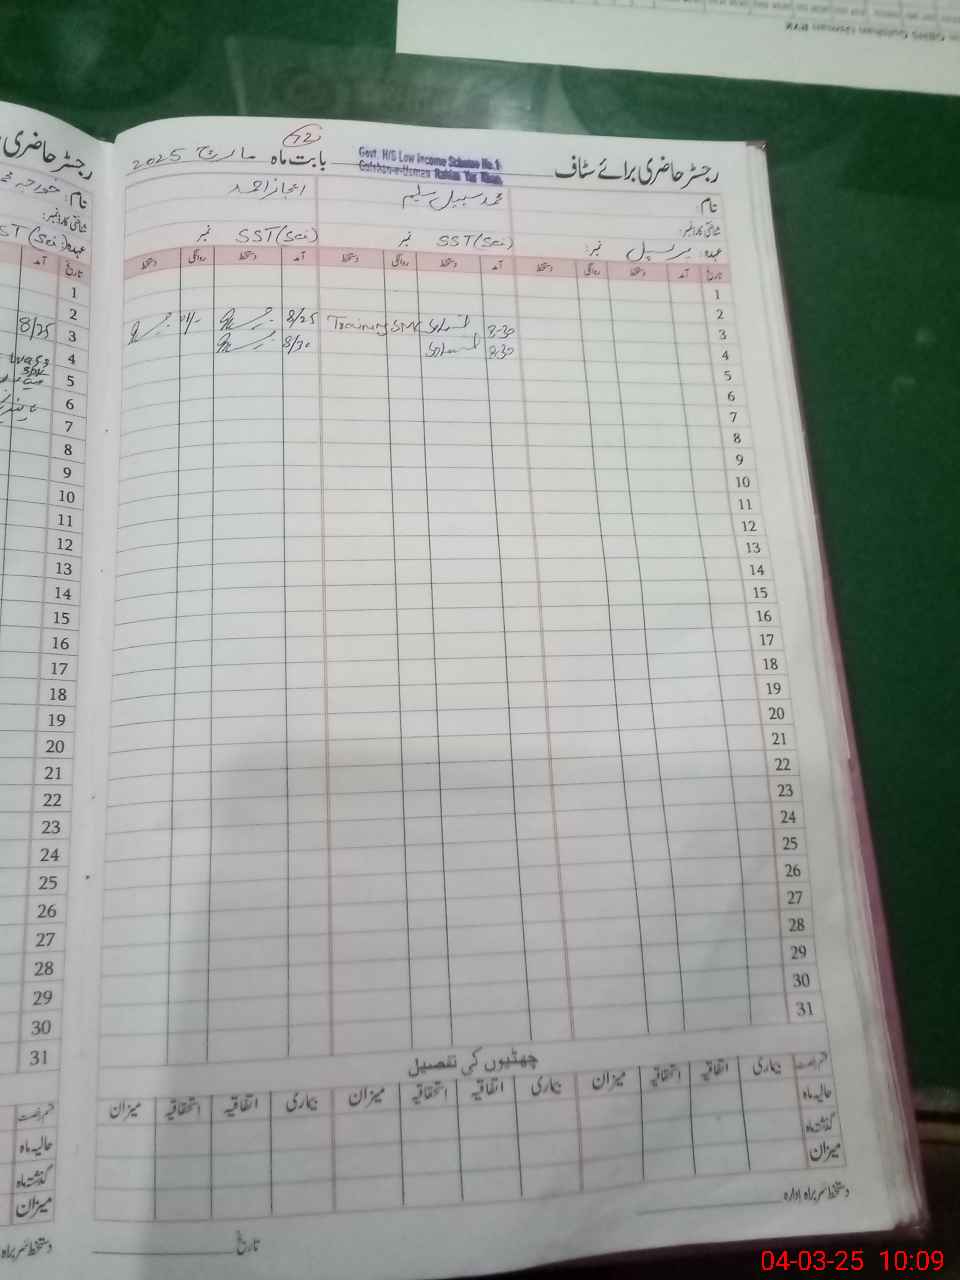 رجسٹر حاضری برائے سٹاف
Govt. H/S Low Income Scheme No.1
Gulshan-e-Usman Rahim Yar Khan.
بابت ماہ مارچ 2025
12
نام: محمد سہیل سلیم اعجاز احمد
شناختی کارڈ نمبر:
عہدہ: پرنسپل نمبر: SST(Sci) نمبر SST(Sci) نمبر
تاریخ آمد دستخط روانگی دستخط آمد دستخط روانگی دستخط آمد دستخط روانگی دستخط
1
2
3 8:30 SMC Training 8/25
4 8:30 8/30
5
6
7
8
9
10
11
12
13
14
15
16
17
18
19
20
21
22
23
24
25
26
27
28
29
30
31
چھٹیوں کی تفصیل
قسم رخصت بیماری اتفاقیہ استحقاقیہ میزان بیماری اتفاقیہ استحقاقیہ میزان بیماری اتفاقیہ استحقاقیہ میزان
حالیہ ماہ
گذشتہ ماہ
میزان
دستخط سربراہ ادارہ
تاریخ
رجسٹر حاضری
نام:
شناختی کارڈ نمبر:
عہدہ: SST(Sci)
تاریخ آمد
1
2
3 8/25
4
5
6
7
8
9
10
11
12
13
14
15
16
17
18
19
20
21
22
23
24
25
26
27
28
29
30
31
قسم رخصت
حالیہ ماہ
گذشتہ ماہ
میزان
دستخط سربراہ
04-03-25 10:09